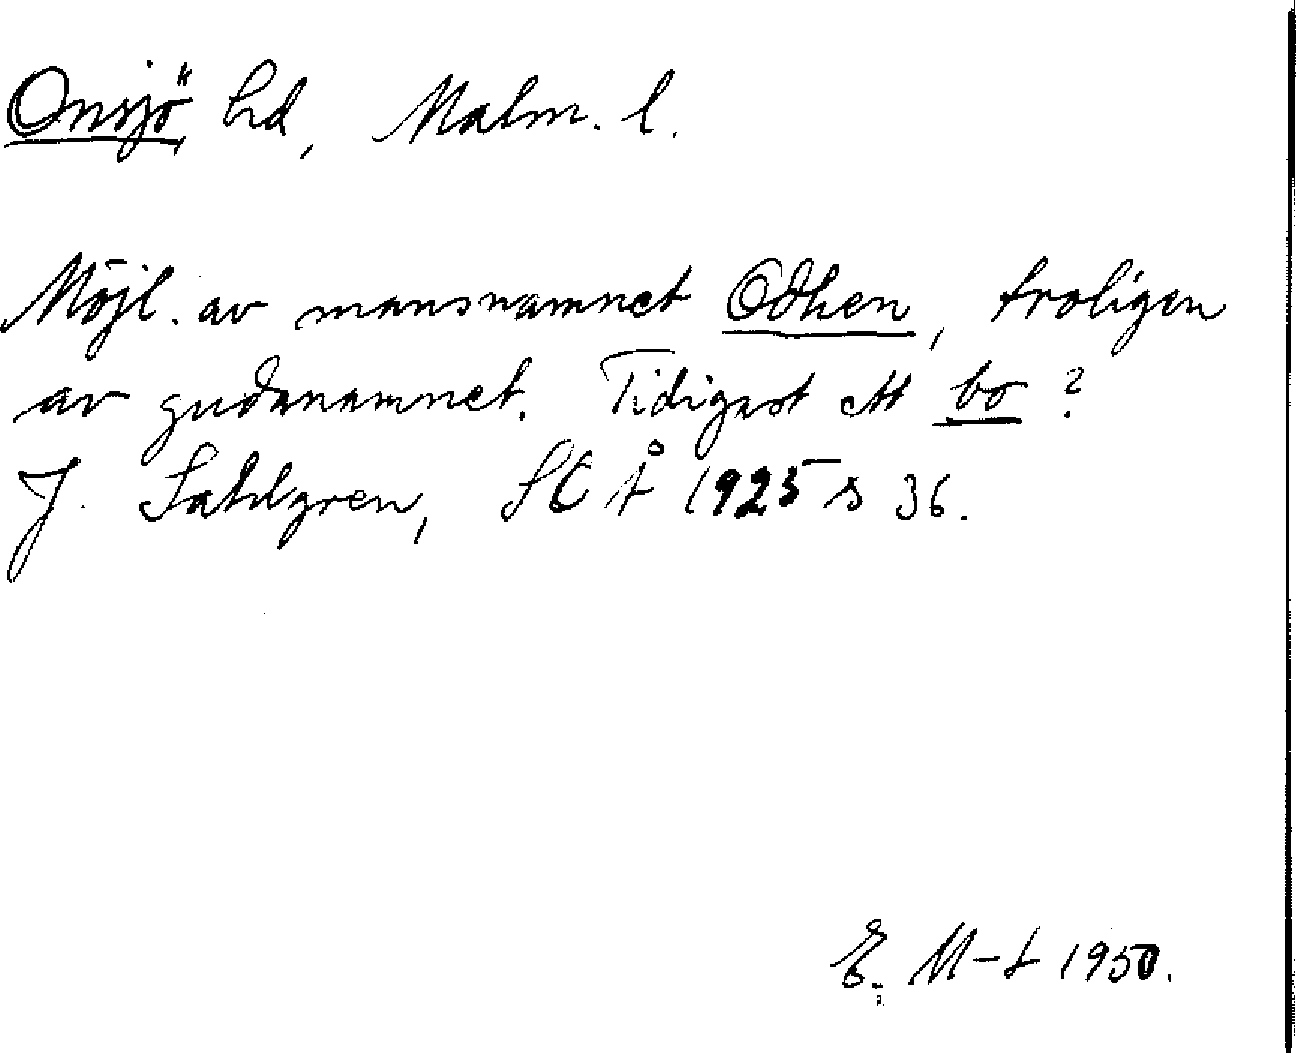 Onsjö hd, Malm. l.
Möjl. av mansnamnet Odhen, troligen
av gudanamnet. Tidigast ett bo?
J. Sahlgren, SCÅ 1925 s 36.
E. M-t 1950.